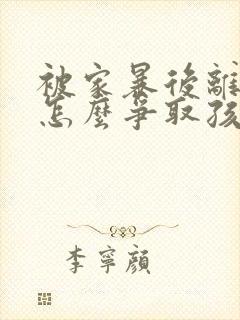 被家暴後離
怎麼爭取孩
李寧顏